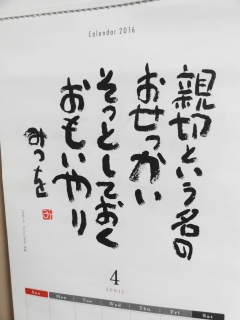 Calendar 2016
親切という名の
おせっかい
そっとしておく
おもいやり
みつを
4
APRIL
Sun Mon Tue Wed Thu Fri Sat